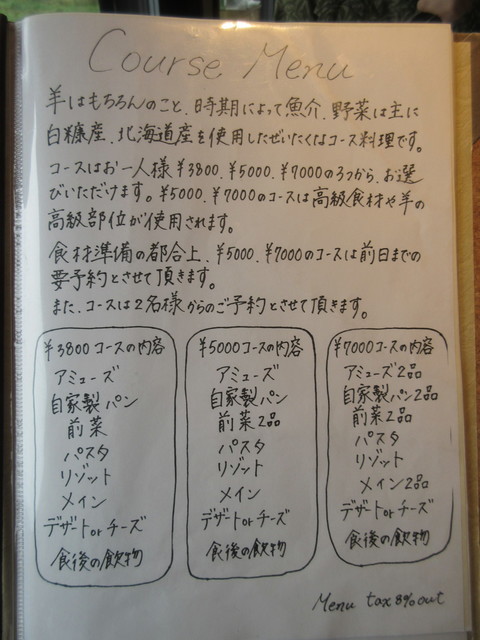 Course Menu
羊はもちろんのこと、時期によって魚介、野菜は主に
白糠産、北海道産を使用したぜいたくなコース料理です。
コースはお一人様¥3800、¥5000、¥7000の3つから、お選
びいただけます。¥5000、¥7000のコースは高級食材や羊の
高級部位が使用されます。
食材準備の都合上、¥5000、¥7000のコースは前日までの
要予約とさせて頂きます。
また、コースは2名様からのご予約とさせて頂きます。
¥3800コースの内容
アミューズ
自家製パン
前菜
パスタ
リゾット
メイン
デザートorチーズ
食後の飲物
¥5000コースの内容
アミューズ
自家製パン
前菜2品
パスタ
リゾット
メイン
デザートorチーズ
食後の飲物
¥7000コースの内容
アミューズ2品
自家製パン2品
前菜2品
パスタ
リゾット
メイン2品
デザートorチーズ
食後の飲物
Menu tax8%out